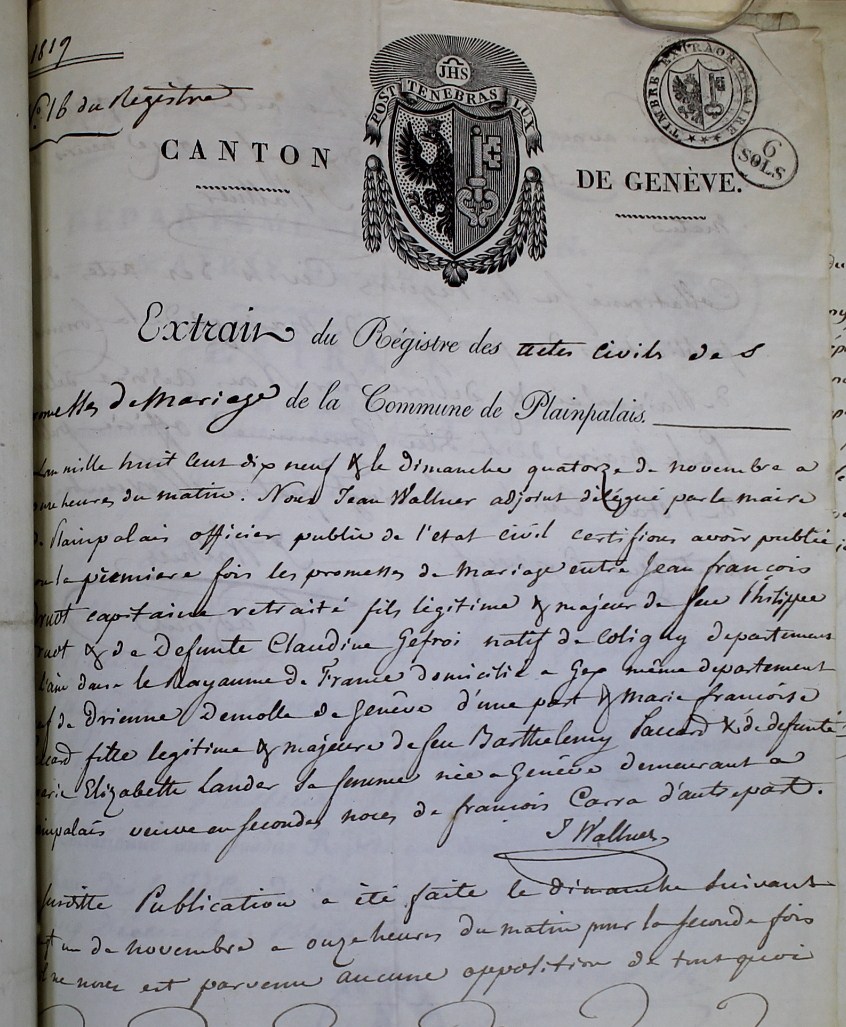 1819
No. 16 du Registre
JHS
POST TENEBRAS LUX
TIMBRE EXTRAORDINAIRE
6
SOLS
CANTON DE GENÈVE.
Extrait du Régistre des actes civils des
promesses de Mariage de la Commune de Plainpalais.
L'an mille huit cent dix neuf & le dimanche quatorze de novembre a
onze heures du matin. Nous Jean Wallner adjoint délégué par le maire
de Plainpalais officier public de l'etat civil certifions avoir publié
pour la premiere fois les promesses de Mariage entre Jean françois
capitaine retraité fils légitime & majeur de feu Philippe
& de Defunte Claudine Gefroi natif de Coligny departement
l'ain dans le Royaume de France domicilié a Gex même departement
veuf de Drienne Demolle de Genêve d'une part & Marie francoise
Paccard fille legitime & majeure de feu Barthelemy Paccard & de defunte
Marie Elizabette Lander sa femme née a Genêve demeurant a
Plainpalais veuve en secondes noces de francois Carra d'autre part.
J Wallner
Susditte Publication a été faite le dimanche suivant
vingt un de novembre a onze heures du matin pour la seconde fois
il ne nous est parvenu aucune opposition de tout quoi